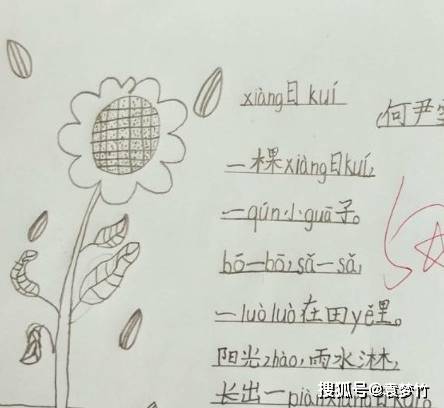 xiàng日kuí
何尹
一棵xiàng日kuí,
一qún小guā子。
bō一bō,sǎ一sǎ,
一luòluò在田yě里。
阳光zhào,雨水淋,
长出一piànxiàng日kuí。
搜狐号@袁梦竹